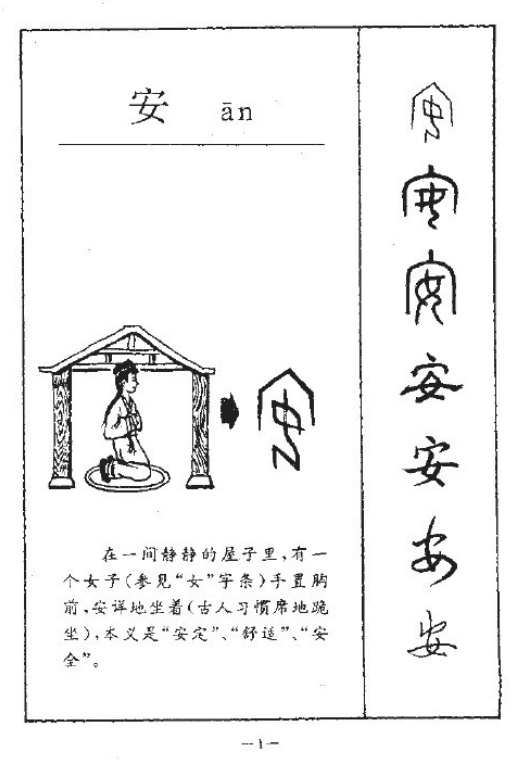 安 ān
在一间静静的屋子里,有一
个女子(参见“女”字条)手置胸
前,安详地坐着(古人习惯席地跪
坐),本义是“安定”、“舒适”、“安
全”。
安
安
安
安
安
安
安
—1—